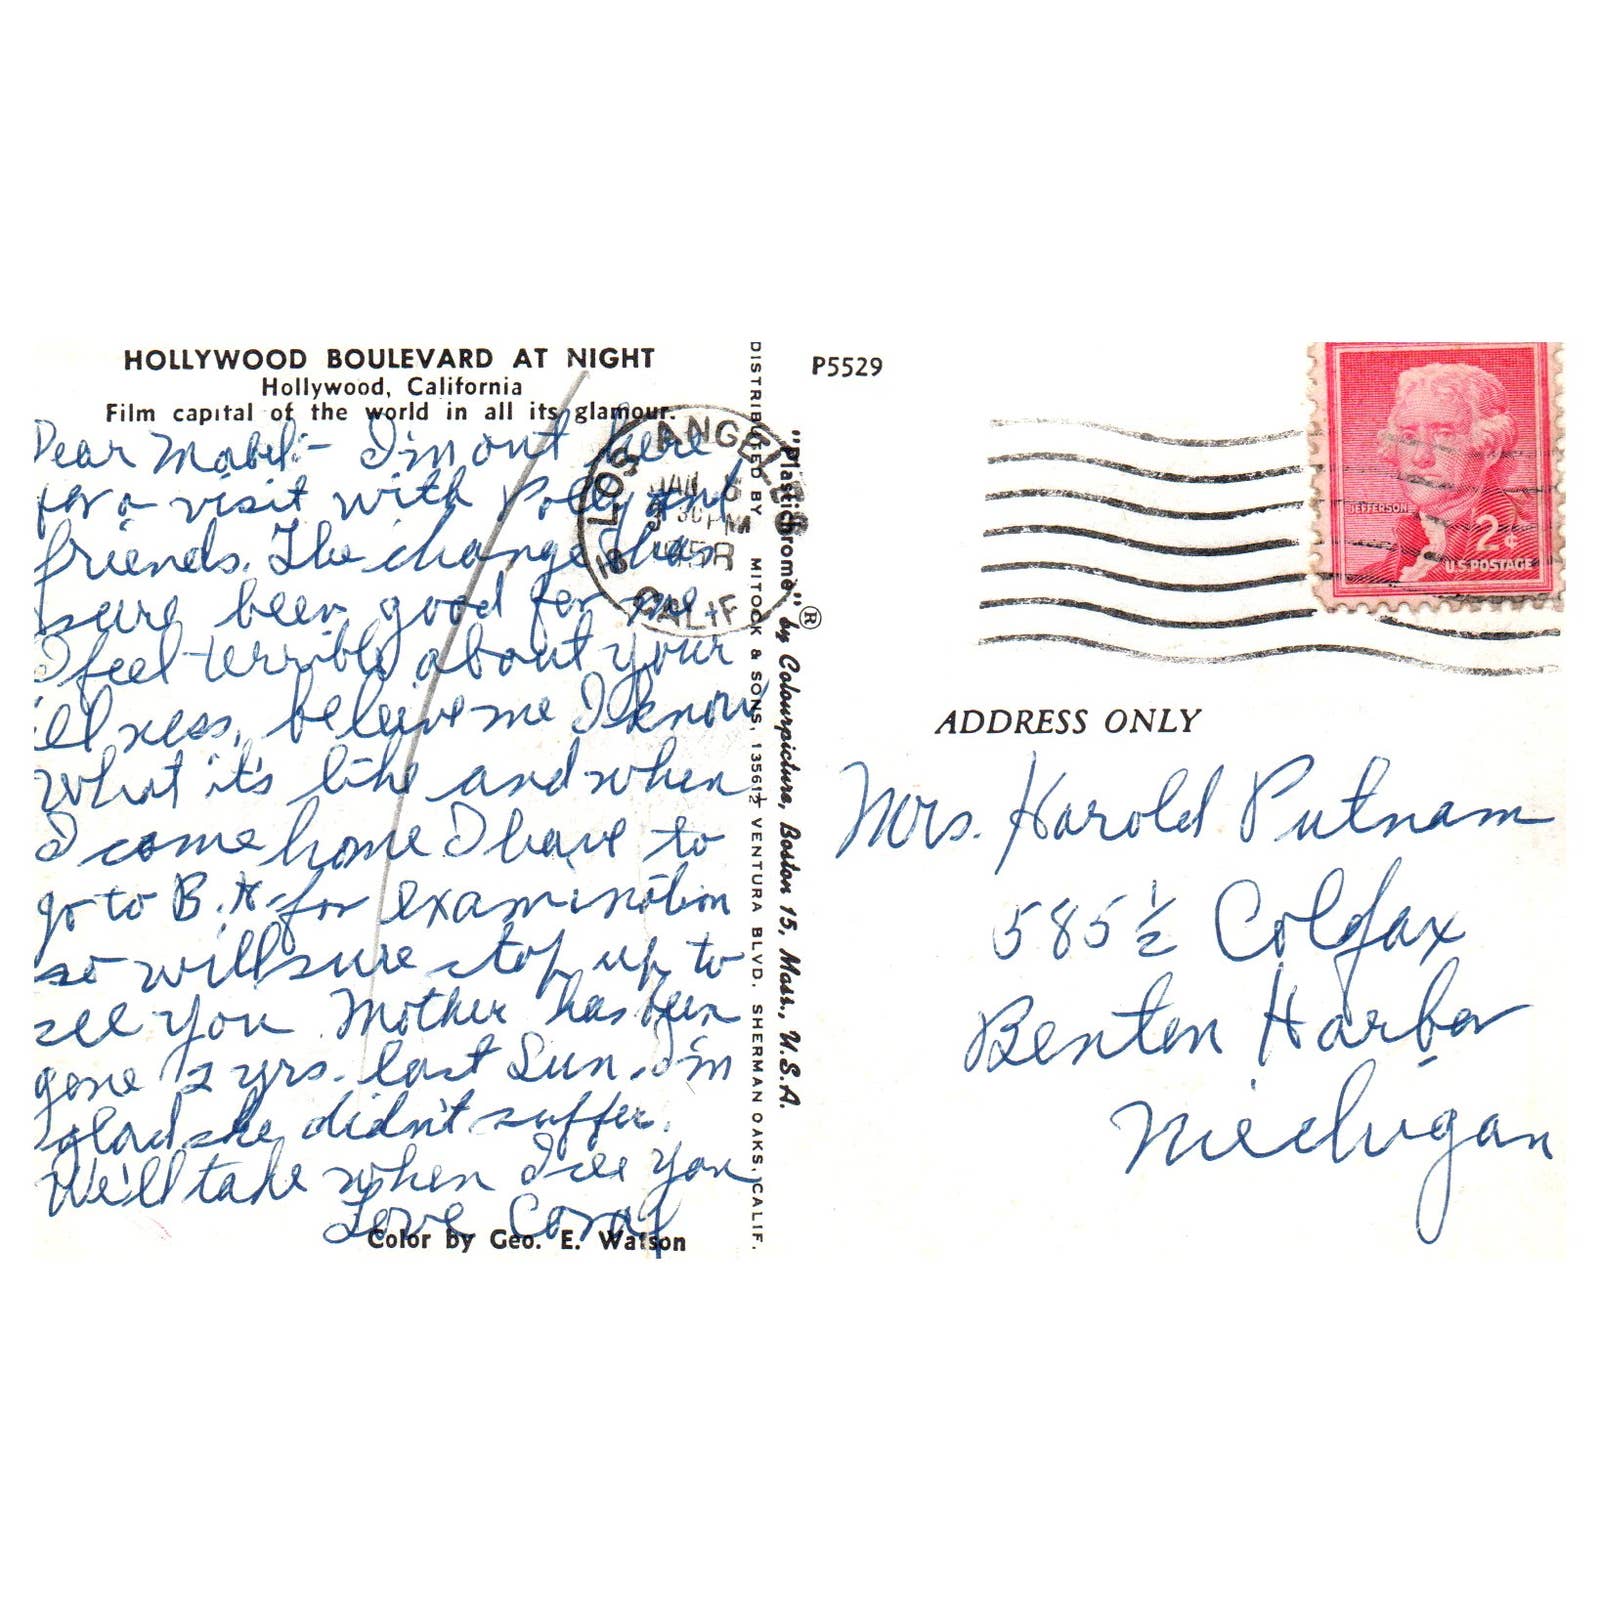 HOLLYWOOD BOULEVARD AT NIGHT
Hollywood, California
Film capital of the world in all its glamour.
Dear Mabel:- I'm out here
for a visit with Polly and
friends. The change has
sure been good for me.
I feel terrible about your
illness, believe me I know
what it's like and when
I come home I have to
go to B.H. for examination
so will sure stop up to
see you. Mother has been
gone 2 yrs. last Sun. I'm
glad she didn't suffer.
We'll take when I see you
Love Coral
Color by Geo. E. Watson
DISTRIBUTED BY MITOCK & SONS, 13561½ VENTURA BLVD. SHERMAN OAKS, CALIF.
"Plastichrome" ® by Colourpicture, Boston 15, Mass., U.S.A.
P5529
LOS ANGELES
JAN 6
30 PM
CALIF
JEFFERSON
2¢
U.S. POSTAGE
ADDRESS ONLY
Mrs. Harold Putnam
585½ Colfax
Benton Harbor
Michigan